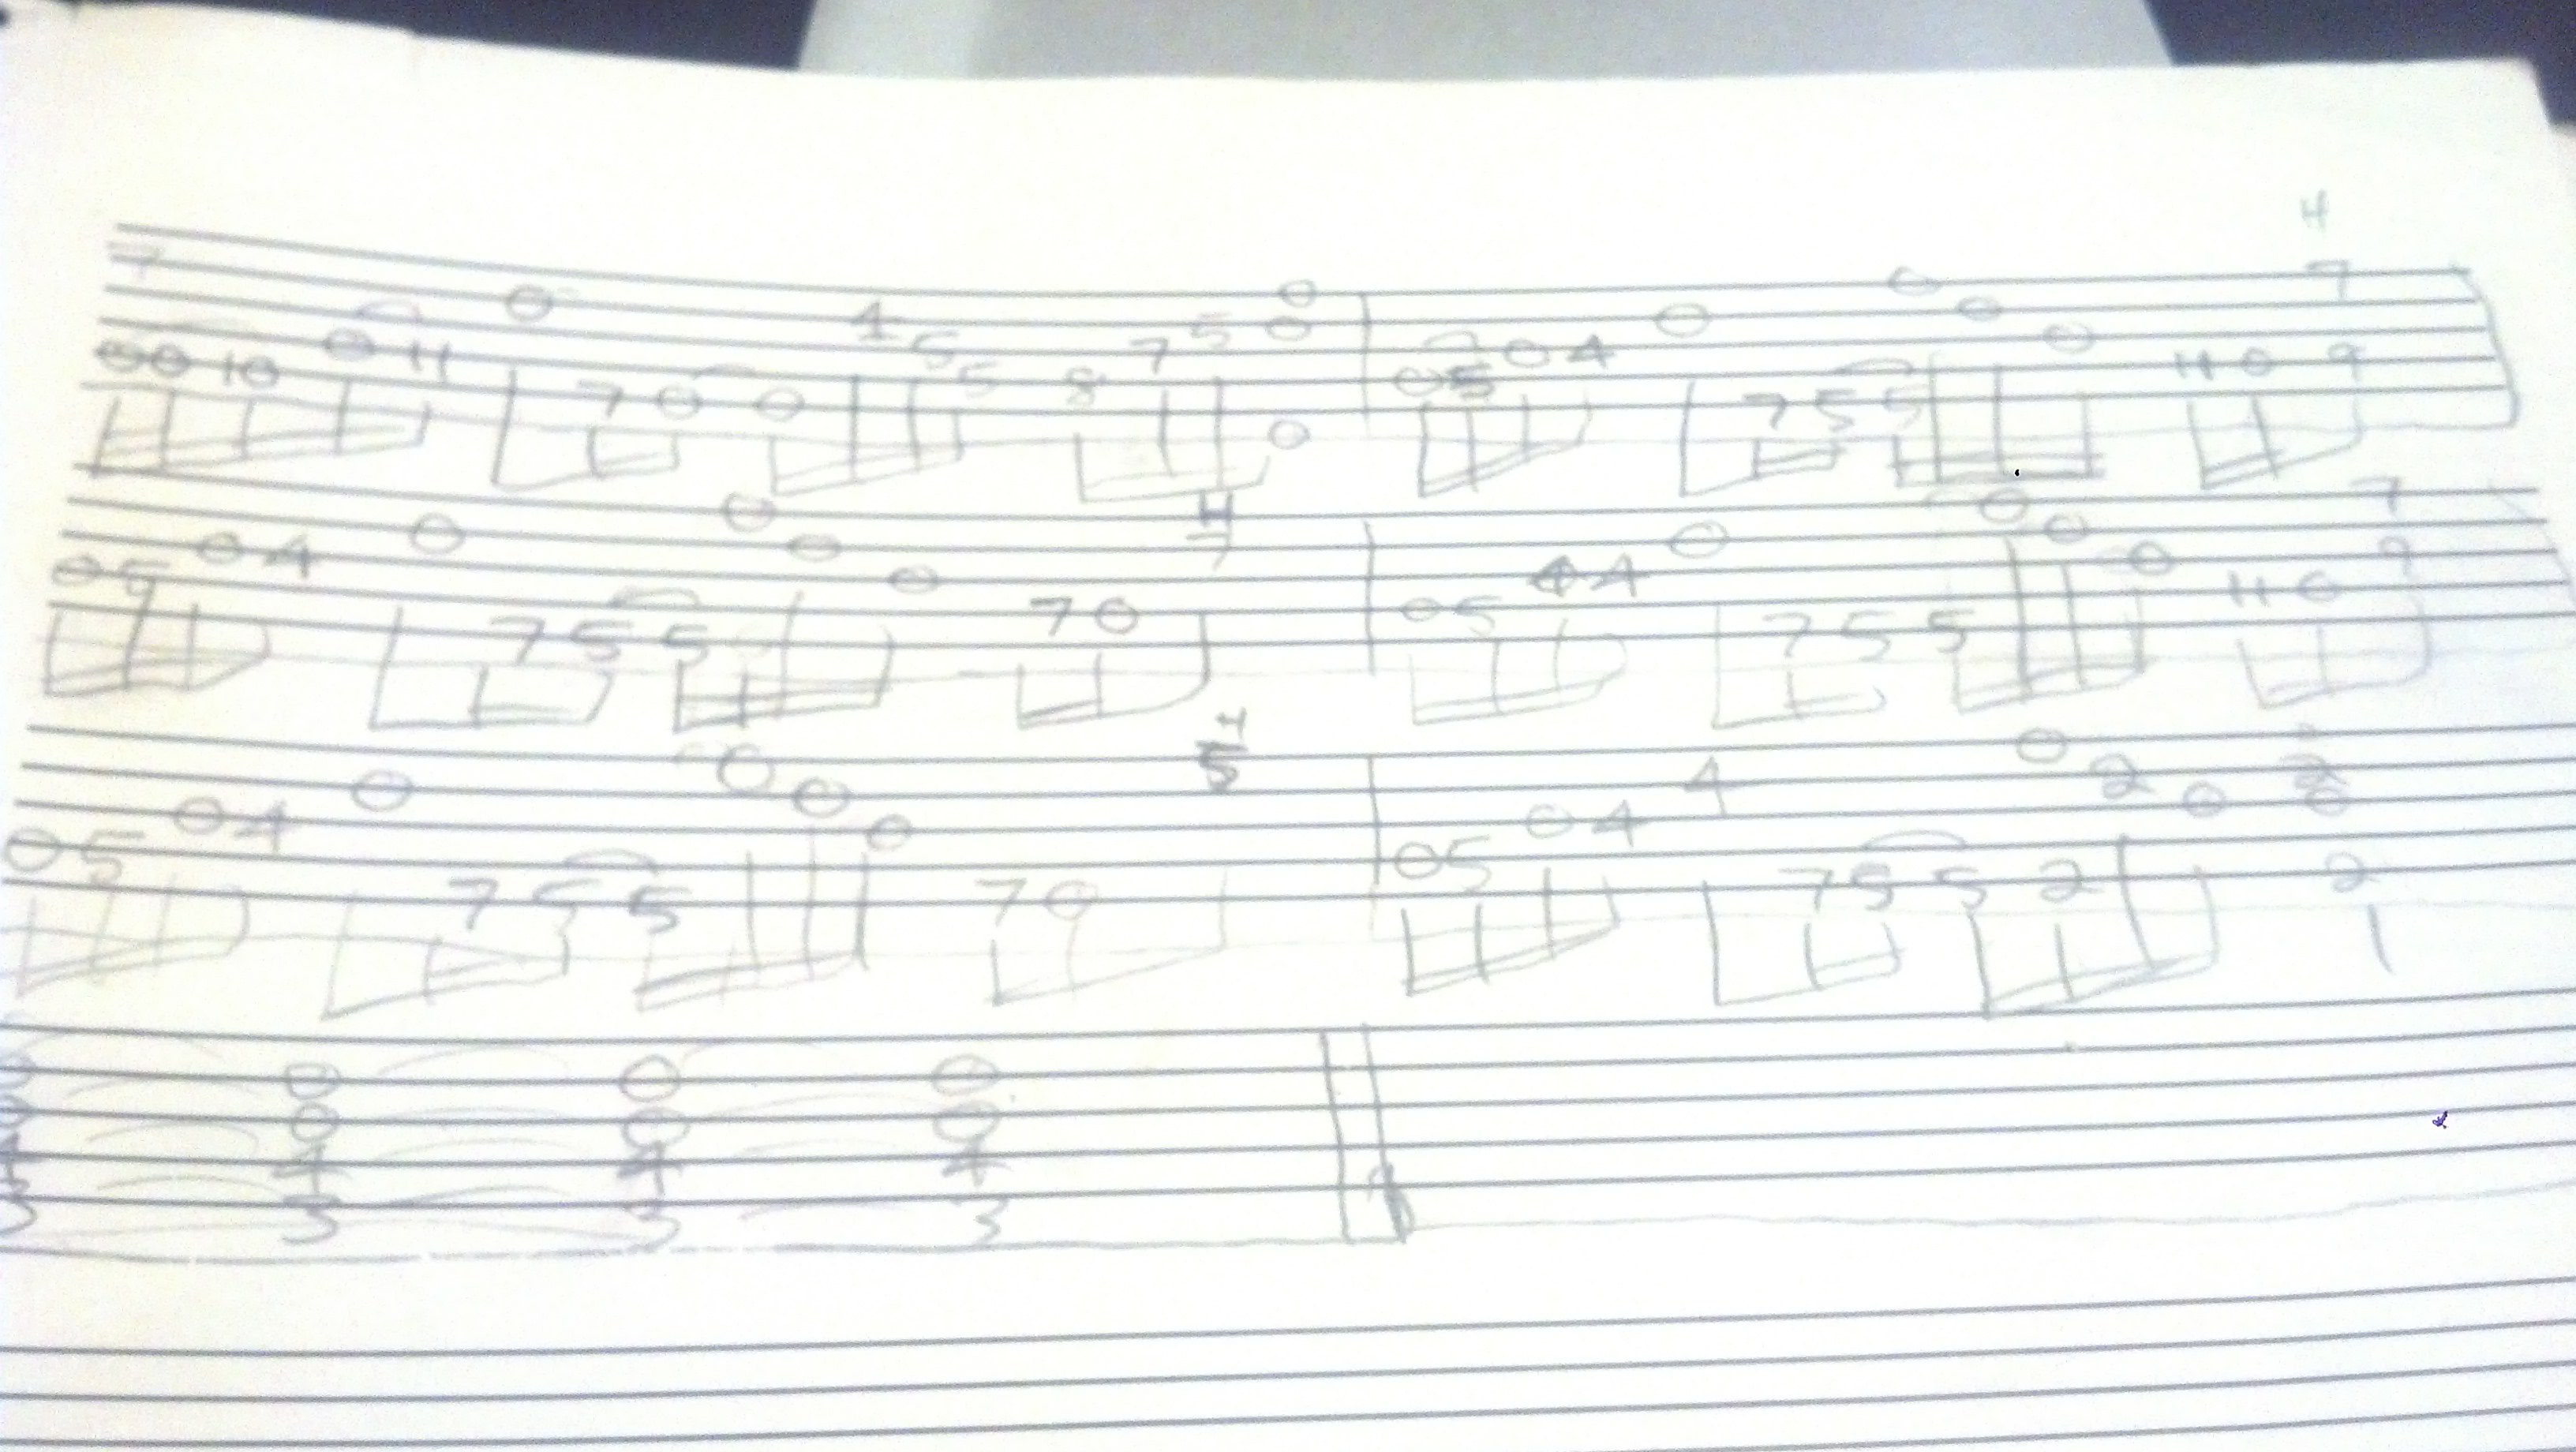 4
7 0 0 10 0 11 0 7 0 0 4 5 5 8 7 5 0 0 0 0 5 0 4 0 7 5 5 0 0 0 11 0 9 7
0 5 0 4 0 7 5 5 0 0 0 7 0 4 7 0 5 4 4 0 7 5 5 0 0 0 11 0 9 7
0 5 0 4 0 7 5 5 0 0 0 7 0 4 5 0 5 0 4 4 7 5 5 2 0 2 0 2 0 2
0 0 0 0
0 0 0 0
4 4 4 4
3 3 3 3